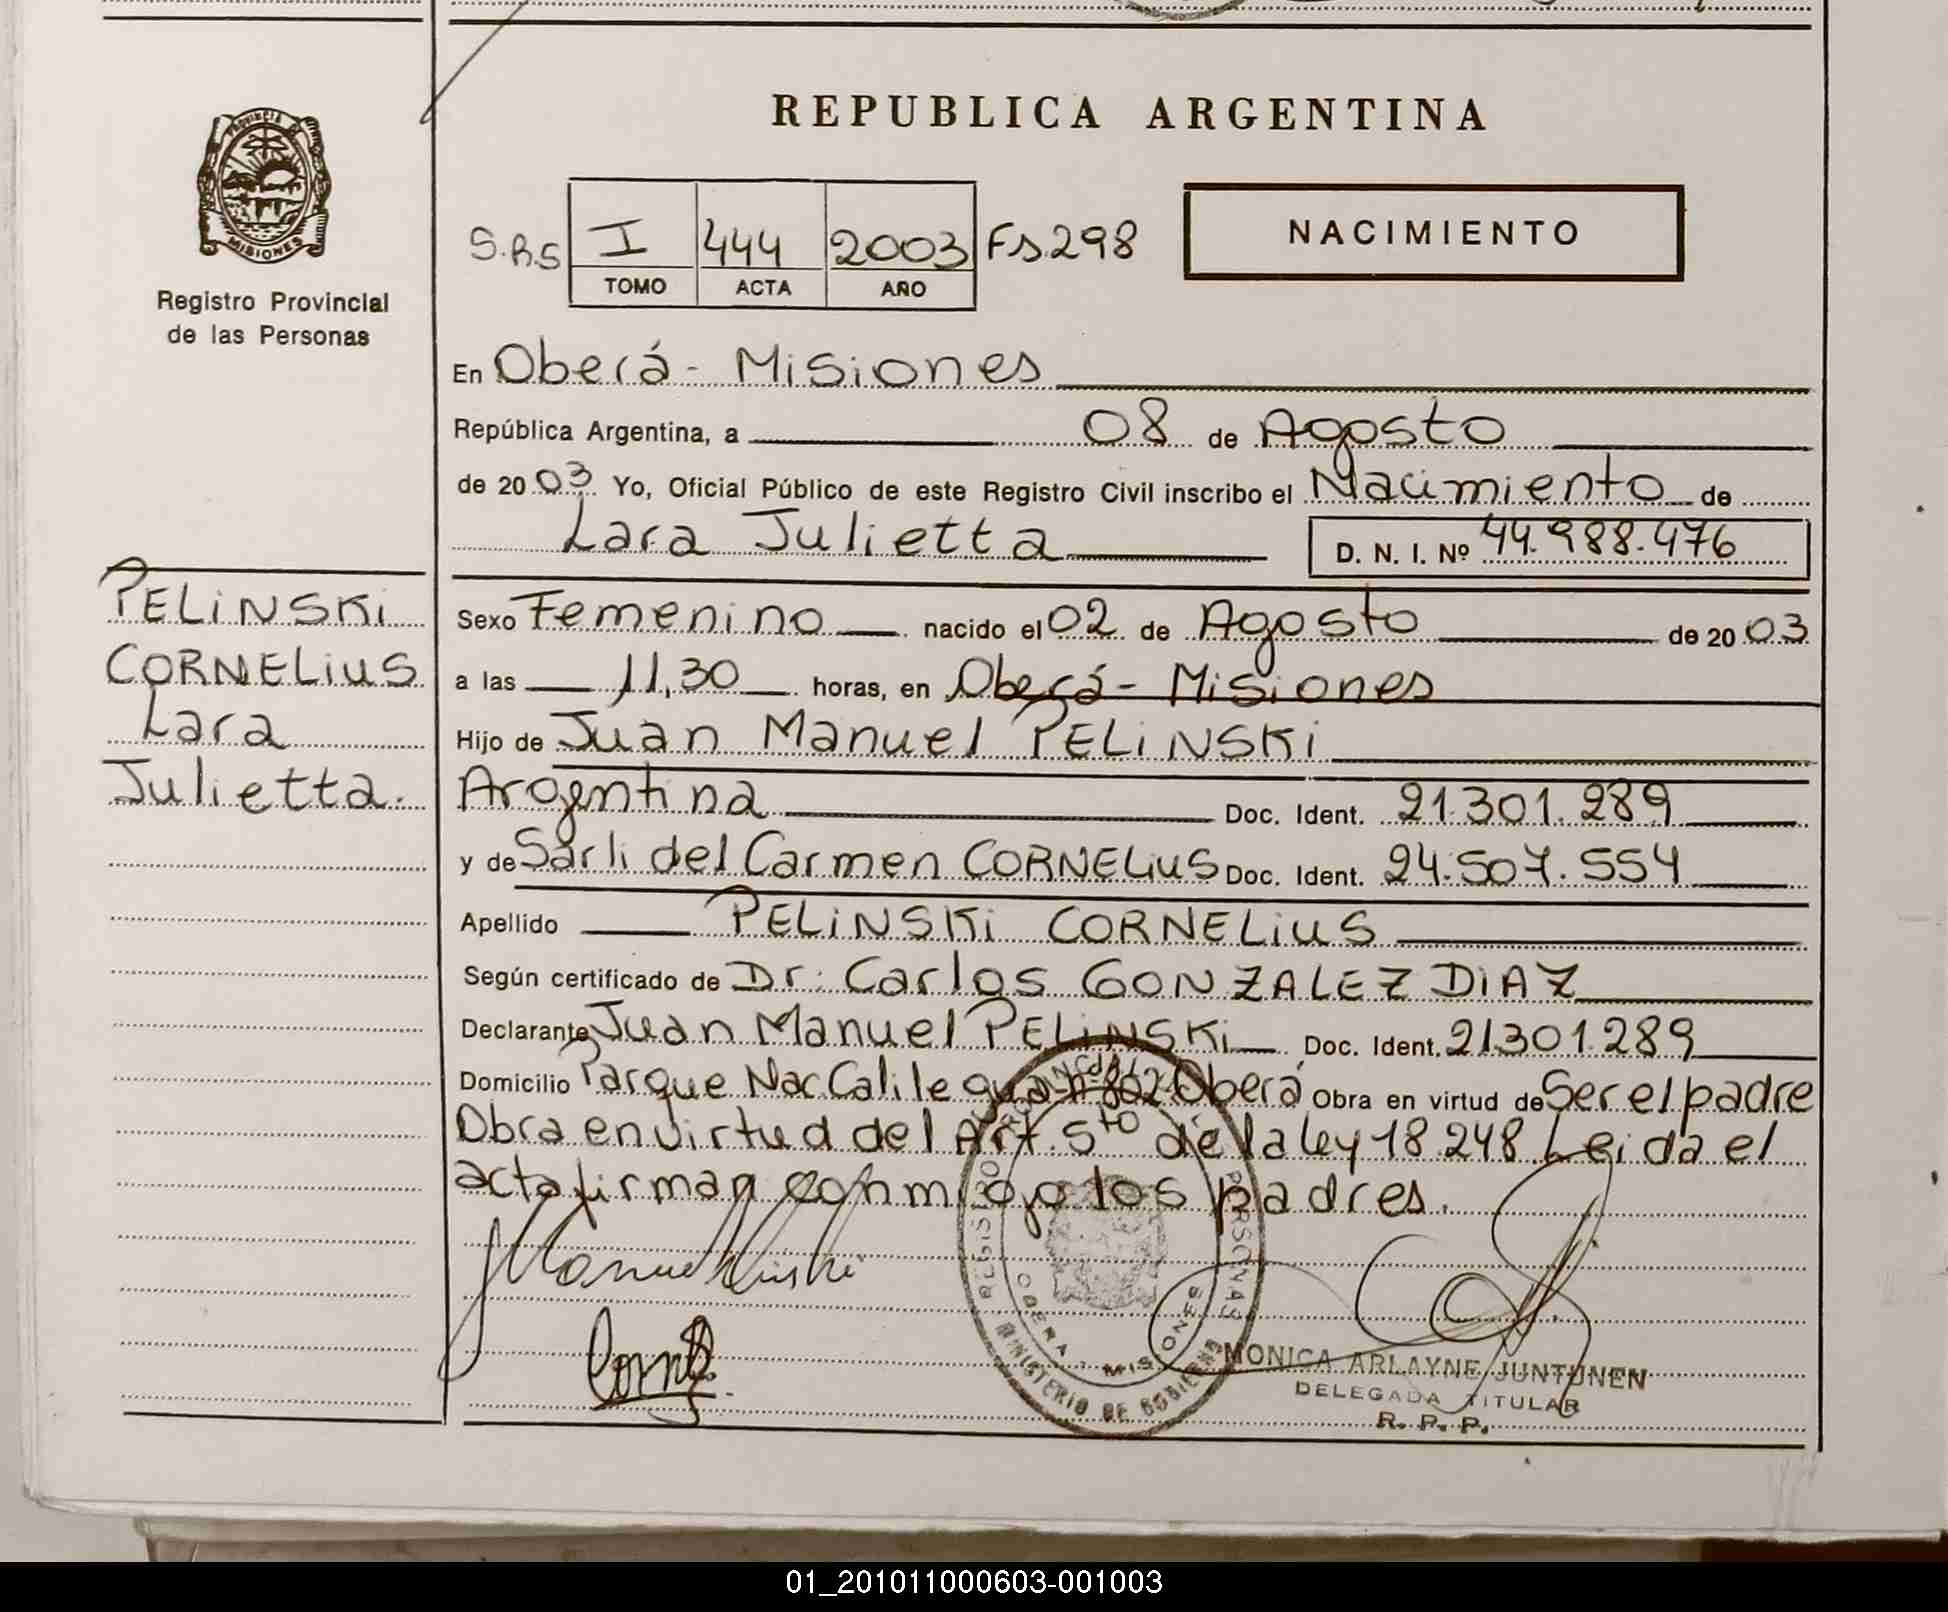 REPUBLICA ARGENTINA
PROVINCIA DE
MISIONES
Registro Provincial
de las Personas
S.R.S I 444 2003 Fs.298
TOMO ACTA AÑO
NACIMIENTO
En Oberá - Misiones
República Argentina, a 08 de Agosto
de 2003 Yo, Oficial Público de este Registro Civil inscribo el Nacimiento de
Lara Julietta D. N. I. Nº 44.988.476
PELINSKI
CORNELIUS
Lara
Julietta.
Sexo Femenino nacido el 02 de Agosto de 2003
a las 11,30 horas, en Oberá - Misiones
Hijo de Juan Manuel PELINSKI
Argentina Doc. Ident. 21.301.289
y de Sarli del Carmen CORNELIUS Doc. Ident. 24.507.554
Apellido PELINSKI CORNELIUS
Según certificado de Dr. Carlos GONZALEZ DIAZ
Declarante Juan Manuel PELINSKI Doc. Ident. 21301289
Domicilio Parque Nac. Calilegua nº 802 Oberá Obra en virtud de Ser el padre
Obra en virtud del Art. 5to de la ley 18.248 Leida el
acta firman conmigo los padres.
REGISTRO PROVINCIAL PERSONAS
OBERA - MISIONES
MINISTERIO DE GOBIERNO
MONICA ARLAYNE JUNTUNEN
DELEGADA TITULAR
R. P. P.
01_201011000603-001003